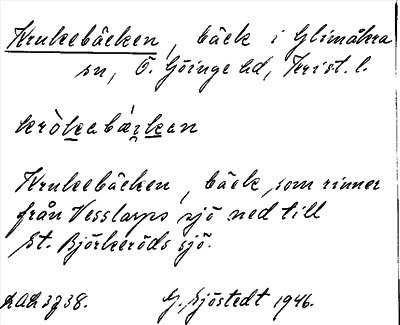 Krukebäcken, bäck i Glimåkra
sn, Ö. Göinge hd, Krist. l.
kròkabǽkan
Krukebäcken, bäck, som rinner
från Vesslarps sjö ned till
St. Björkeröds sjö.
G. Sjöstedt 1946.